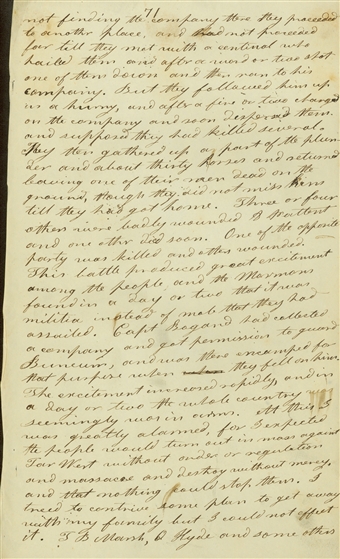 71
not finding the company there they proceeded
to another place, and had not proceeded
far till they met with a centinal who
hailed them and after a word or two shot
one of them down and then ran to his
company. But they followed him up
in a hurry, and after a fire or two charged
on the company and soon dispersed them.
and supposed they had killed several.
They then gathered up a part of the plun-
der and about thirty horses and returned
leaving one of their men dead on the
ground, though they did not miss him
till they had got home. Three or four
others were badly wounded D Pattent
and one othr died soon. One of the opposite
party was killed and others wounded.
This battle produced great excitement
among the people and the Mormons
found in a day or two that it was
militia instead of mob that they had
assailed. Capt Bogard had collected
a company and got permission to guard
Buncum, and was there encamped for
that purpose when they fell on him.
The excitement increased rapidly, and in
a day or two the whole country
seemingly was in arms. At this I
was greatly alarmed, for I expected
the people would turn out in mass against
Far West without order or regulation
and massacre and destroy without mercy,
and that nothing could stop them. I
tried to contrive some plan to get away
with my family but I could not effect
it. T B Marsh, O Hyde and some others